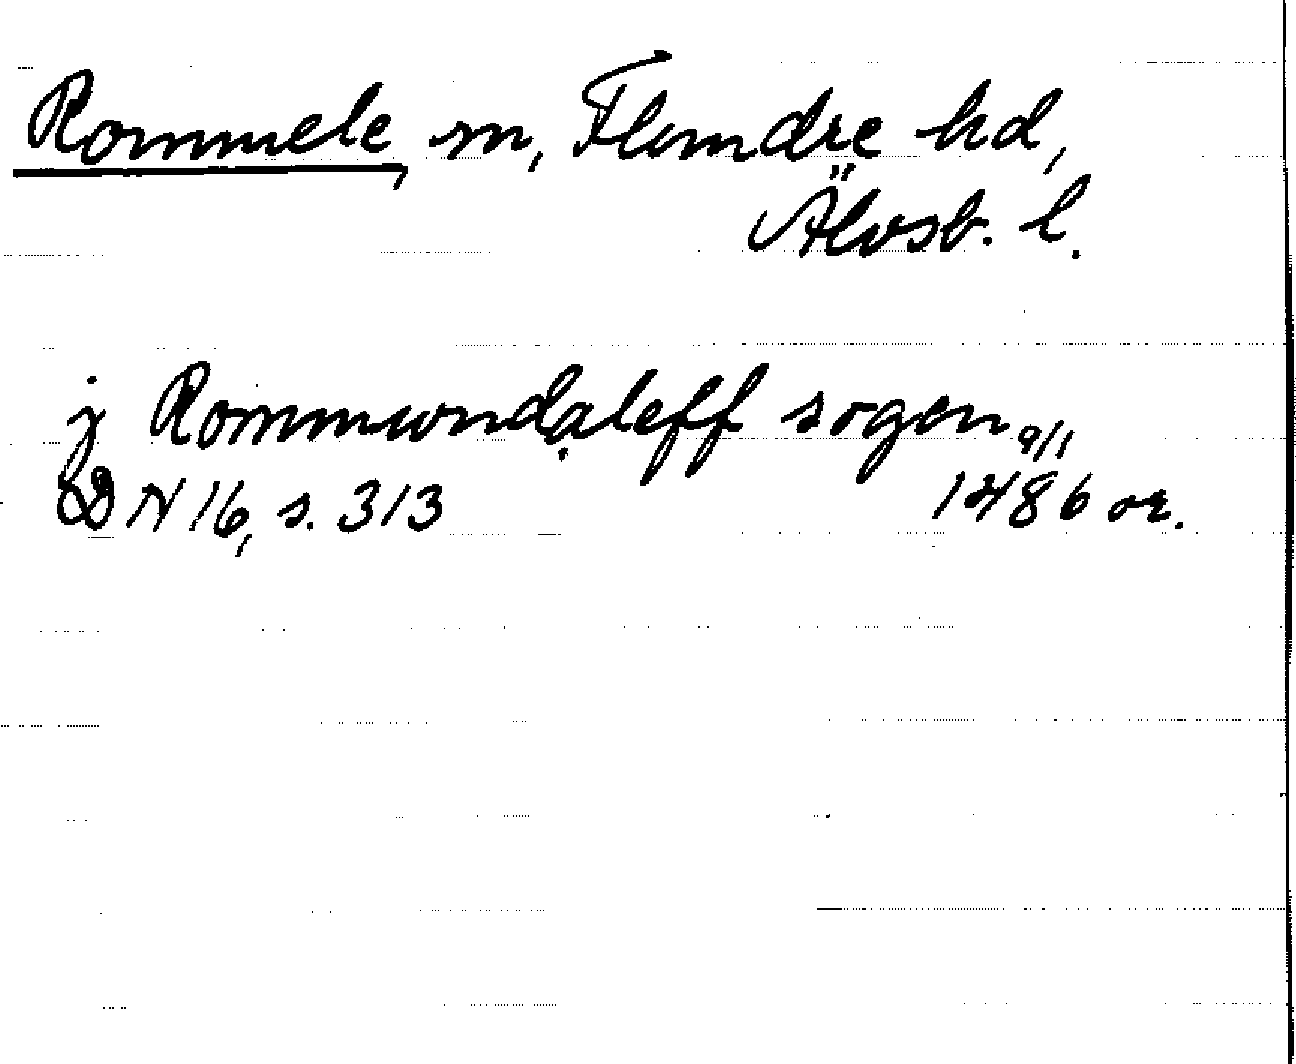 Rommele, sn, Flundre hd,
Älvsb. l.
j Rommundaleff sogen 9/1
DN 16, s. 313 1486 or.